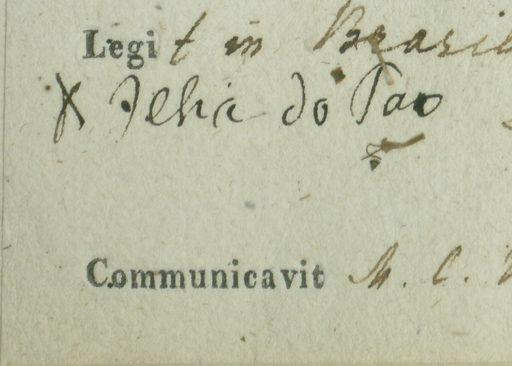 Legit in Brasil
X Ilha do Pao
Communicavit M. C.